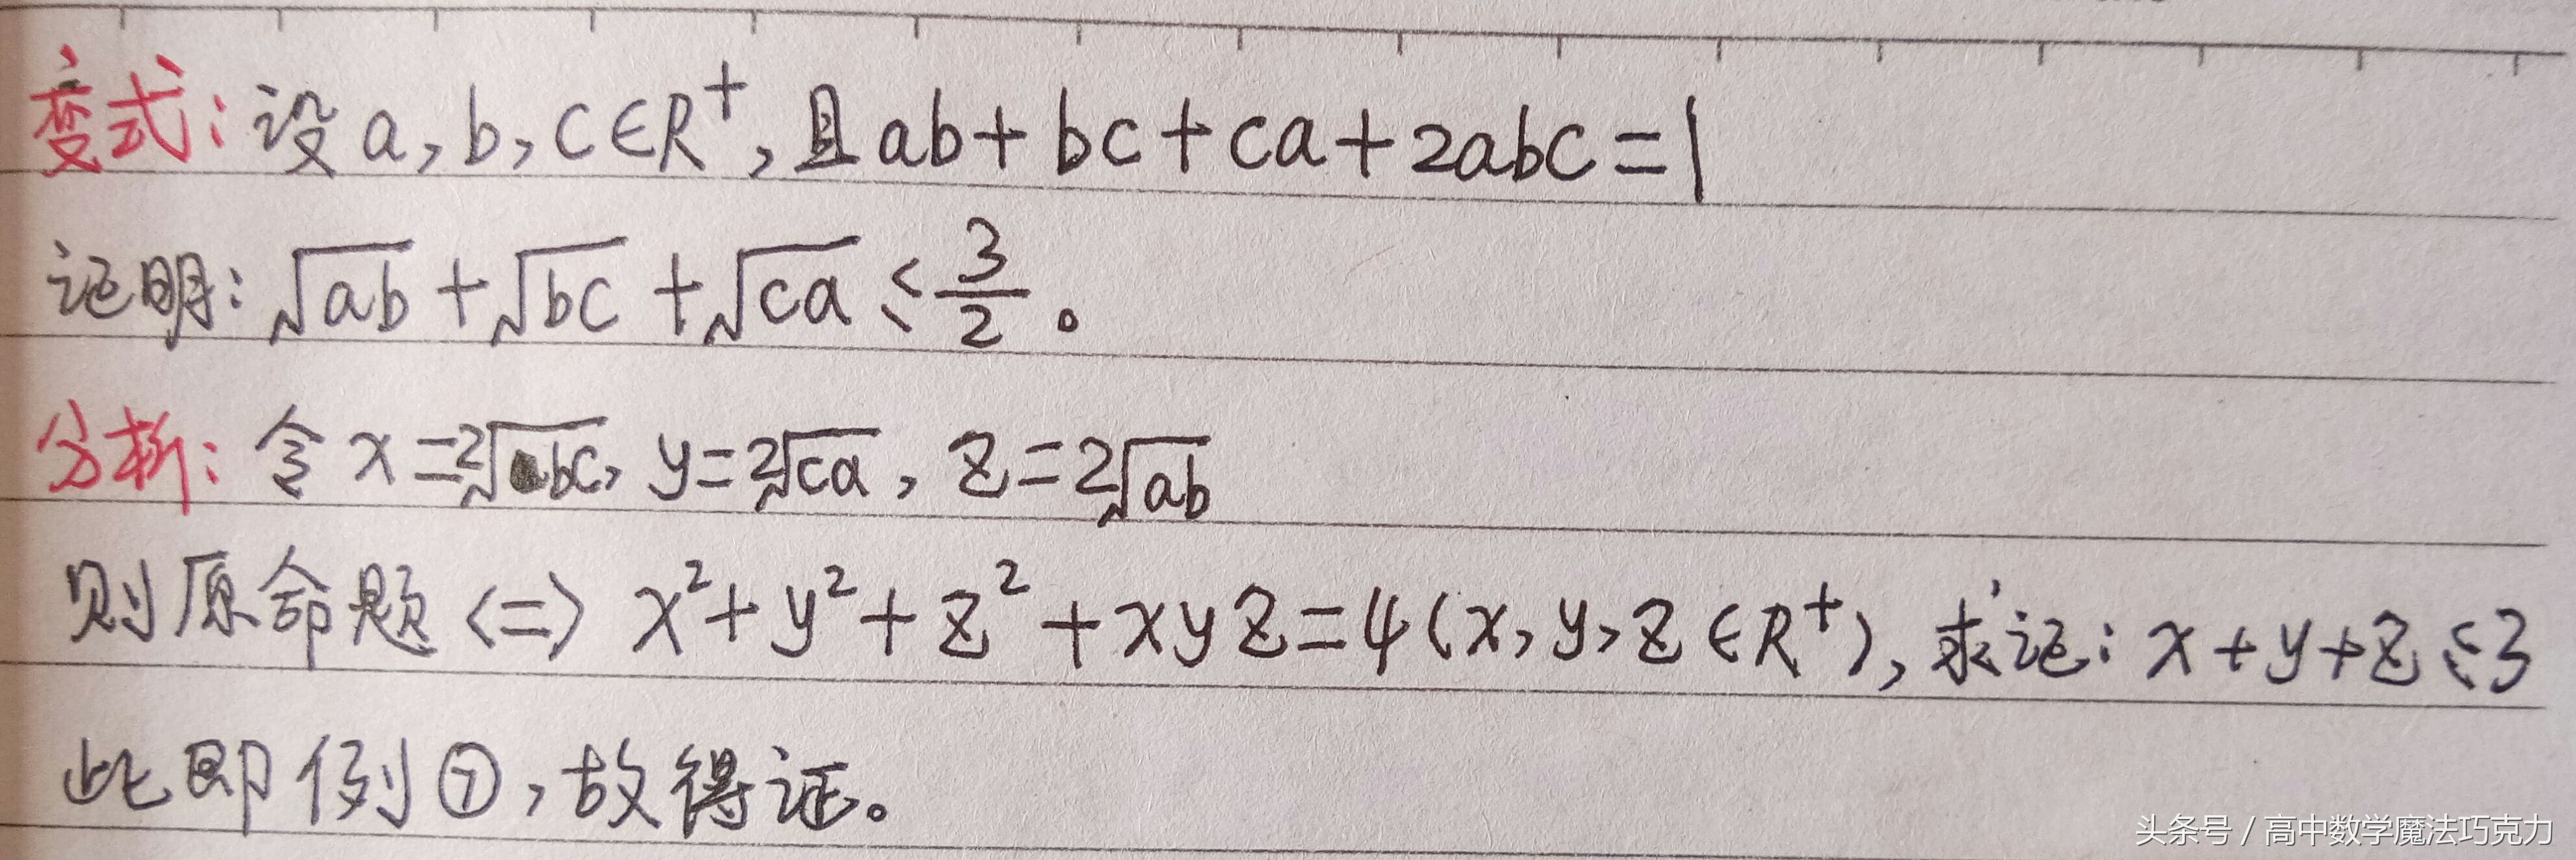 变式:设a,b,c∈R⁺,且ab+bc+ca+2abc=1
证明:√ab+√bc+√ca≤3/2。
分析:令x=2√bc,y=2√ca,z=2√ab
则原命题<=>x²+y²+z²+xyz=4(x,y,z∈R⁺),求证:x+y+z≤3
此即例⑦,故得证。
头条号/高中数学魔法巧克力